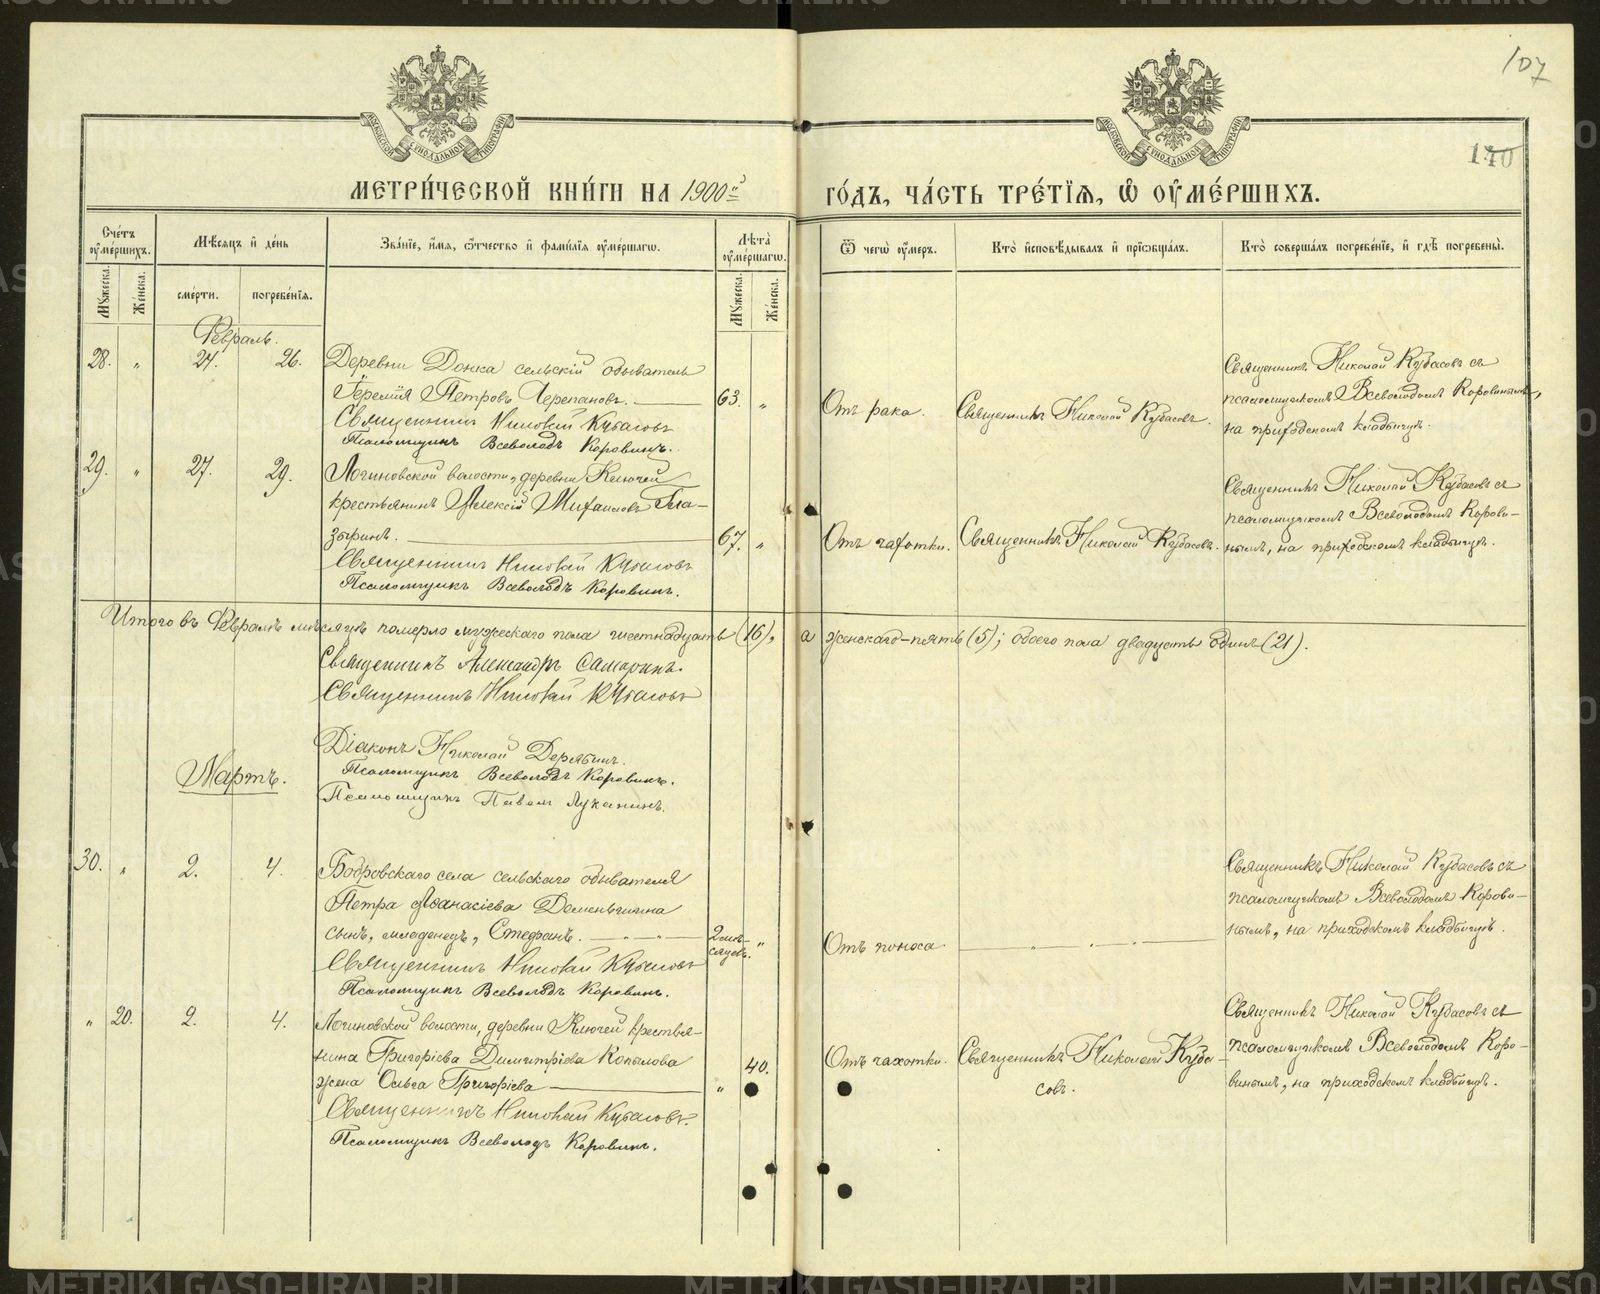 107
140
МЕТРИ́ЧЕСКОЙ КНИ́ГИ НА 1900й
ГО́ДЪ, ЧА́СТЬ ТРЕ́ТІѦ, Ѿ ОУ҆МЕ́РШИХЪ.
Счетъ оумершихъ.
Мѣсяцъ и день
Званіе, имя, отчество и фамилія оумершагѡ.
Лѣта оумершагѡ.
Ѿ чегѡ оумеръ.
Кто исповѣдывалъ и пріобщалъ.
Кто совершалъ погребеніе, и гдѣ погребены.
Мужеска.
Женска.
смерти.
погребенія.
Мужеска.
Женска.
Февраль.
28. „ 24. 26.
Деревни Донка сельскій обыватель
Іеремія Петровъ Черепановъ.
63. „
Отъ рака.
Священникъ Николай Кубасовъ.
Священникъ Николай Кубасовъ съ
псаломщикомъ Всеволодомъ Коровинымъ,
на приходскомъ кладбищѣ.
Священникъ Николай Кубасовъ
Псаломщикъ Всеволодъ Коровинъ.
29. „ 27. 29.
Логиновской волости, деревни Ключей
крестьянинъ Алексій Михаиловъ Гла-
зыринъ.
67. „
Отъ чахотки.
Священникъ Николай Кубасовъ.
Священникъ Николай Кубасовъ съ
псаломщикомъ Всеволодомъ Корови-
нымъ, на приходскомъ кладбищѣ.
Священникъ Николай Кубасовъ
Псаломщикъ Всеволодъ Коровинъ.
Итого въ Февралѣ мѣсяцѣ померло мужескаго пола шестнадцать (16), а женскаго-пять (5); обоего пола двадцать одинъ (21).
Священникъ Александръ Сапоринъ.
Священникъ Николай Кубасовъ
Діаконъ Николай Дерябинъ.
Псаломщикъ Всеволодъ Коровинъ.
Псаломщикъ Павелъ Луканинъ.
Мартъ.
30. „ 2. 4.
Бобровскаго села сельскаго обывателя
Петра Аѳанасіева Деменьшина
сынъ, младенецъ, Стефанъ.
2 мѣ-
сяцовъ. „
Отъ поноса
Священникъ Николай Кубасовъ съ
псаломщикомъ Всеволодомъ Корови-
нымъ, на приходскомъ кладбищѣ.
Священникъ Николай Кубасовъ
Псаломщикъ Всеволодъ Коровинъ.
„ 20. 2. 4.
Логиновской волости, деревни Ключей крестья-
нина Григорія Димитріева Копылова
жена Ольга Григоріева
„ 40.
Отъ чахотки.
Священникъ Николай Куба-
совъ.
Священникъ Николай Кубасовъ съ
псаломщикомъ Всеволодомъ Коро-
винымъ, на приходскомъ кладбищѣ.
Священникъ Николай Кубасовъ.
Псаломщикъ Всеволодъ Коровинъ.
METRIKI.GASO-URAL.RU